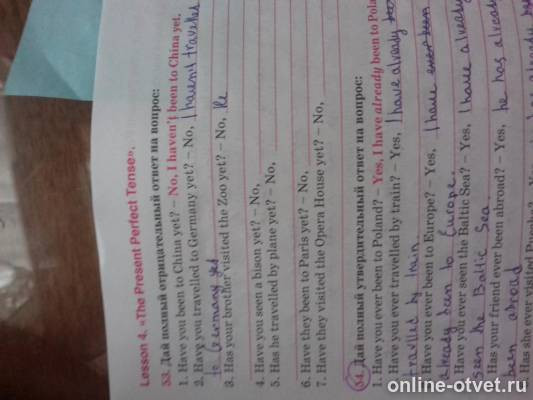 Lesson 4. «The Present Perfect Tense».
53. Дай полный отрицательный ответ на вопрос:
1. Have you been to China yet? – No, I haven't been to China yet.
2. Have you travelled to Germany yet? – No, I havent travelled
to Germany yet
3. Has your brother visited the Zoo yet? – No, He
4. Have you seen a bison yet? – No,
5. Has he travelled by plane yet? – No,
6. Have they been to Paris yet? – No,
7. Have they visited the Opera House yet? – No,
54. Дай полный утвердительный ответ на вопрос:
1. Have you ever been to Poland? – Yes, I have already been to Pola
2. Have you ever travelled by train? – Yes, I have already
travelled by train
Have you ever been to Europe? – Yes, I have ever been
already been to Europe.
Have you ever seen the Baltic Sea? – Yes, I have already
seen the Baltic Sea
Has your friend ever been abroad? – Yes, he has alread
been abroad
Has she ever visited
online-otvet.ru